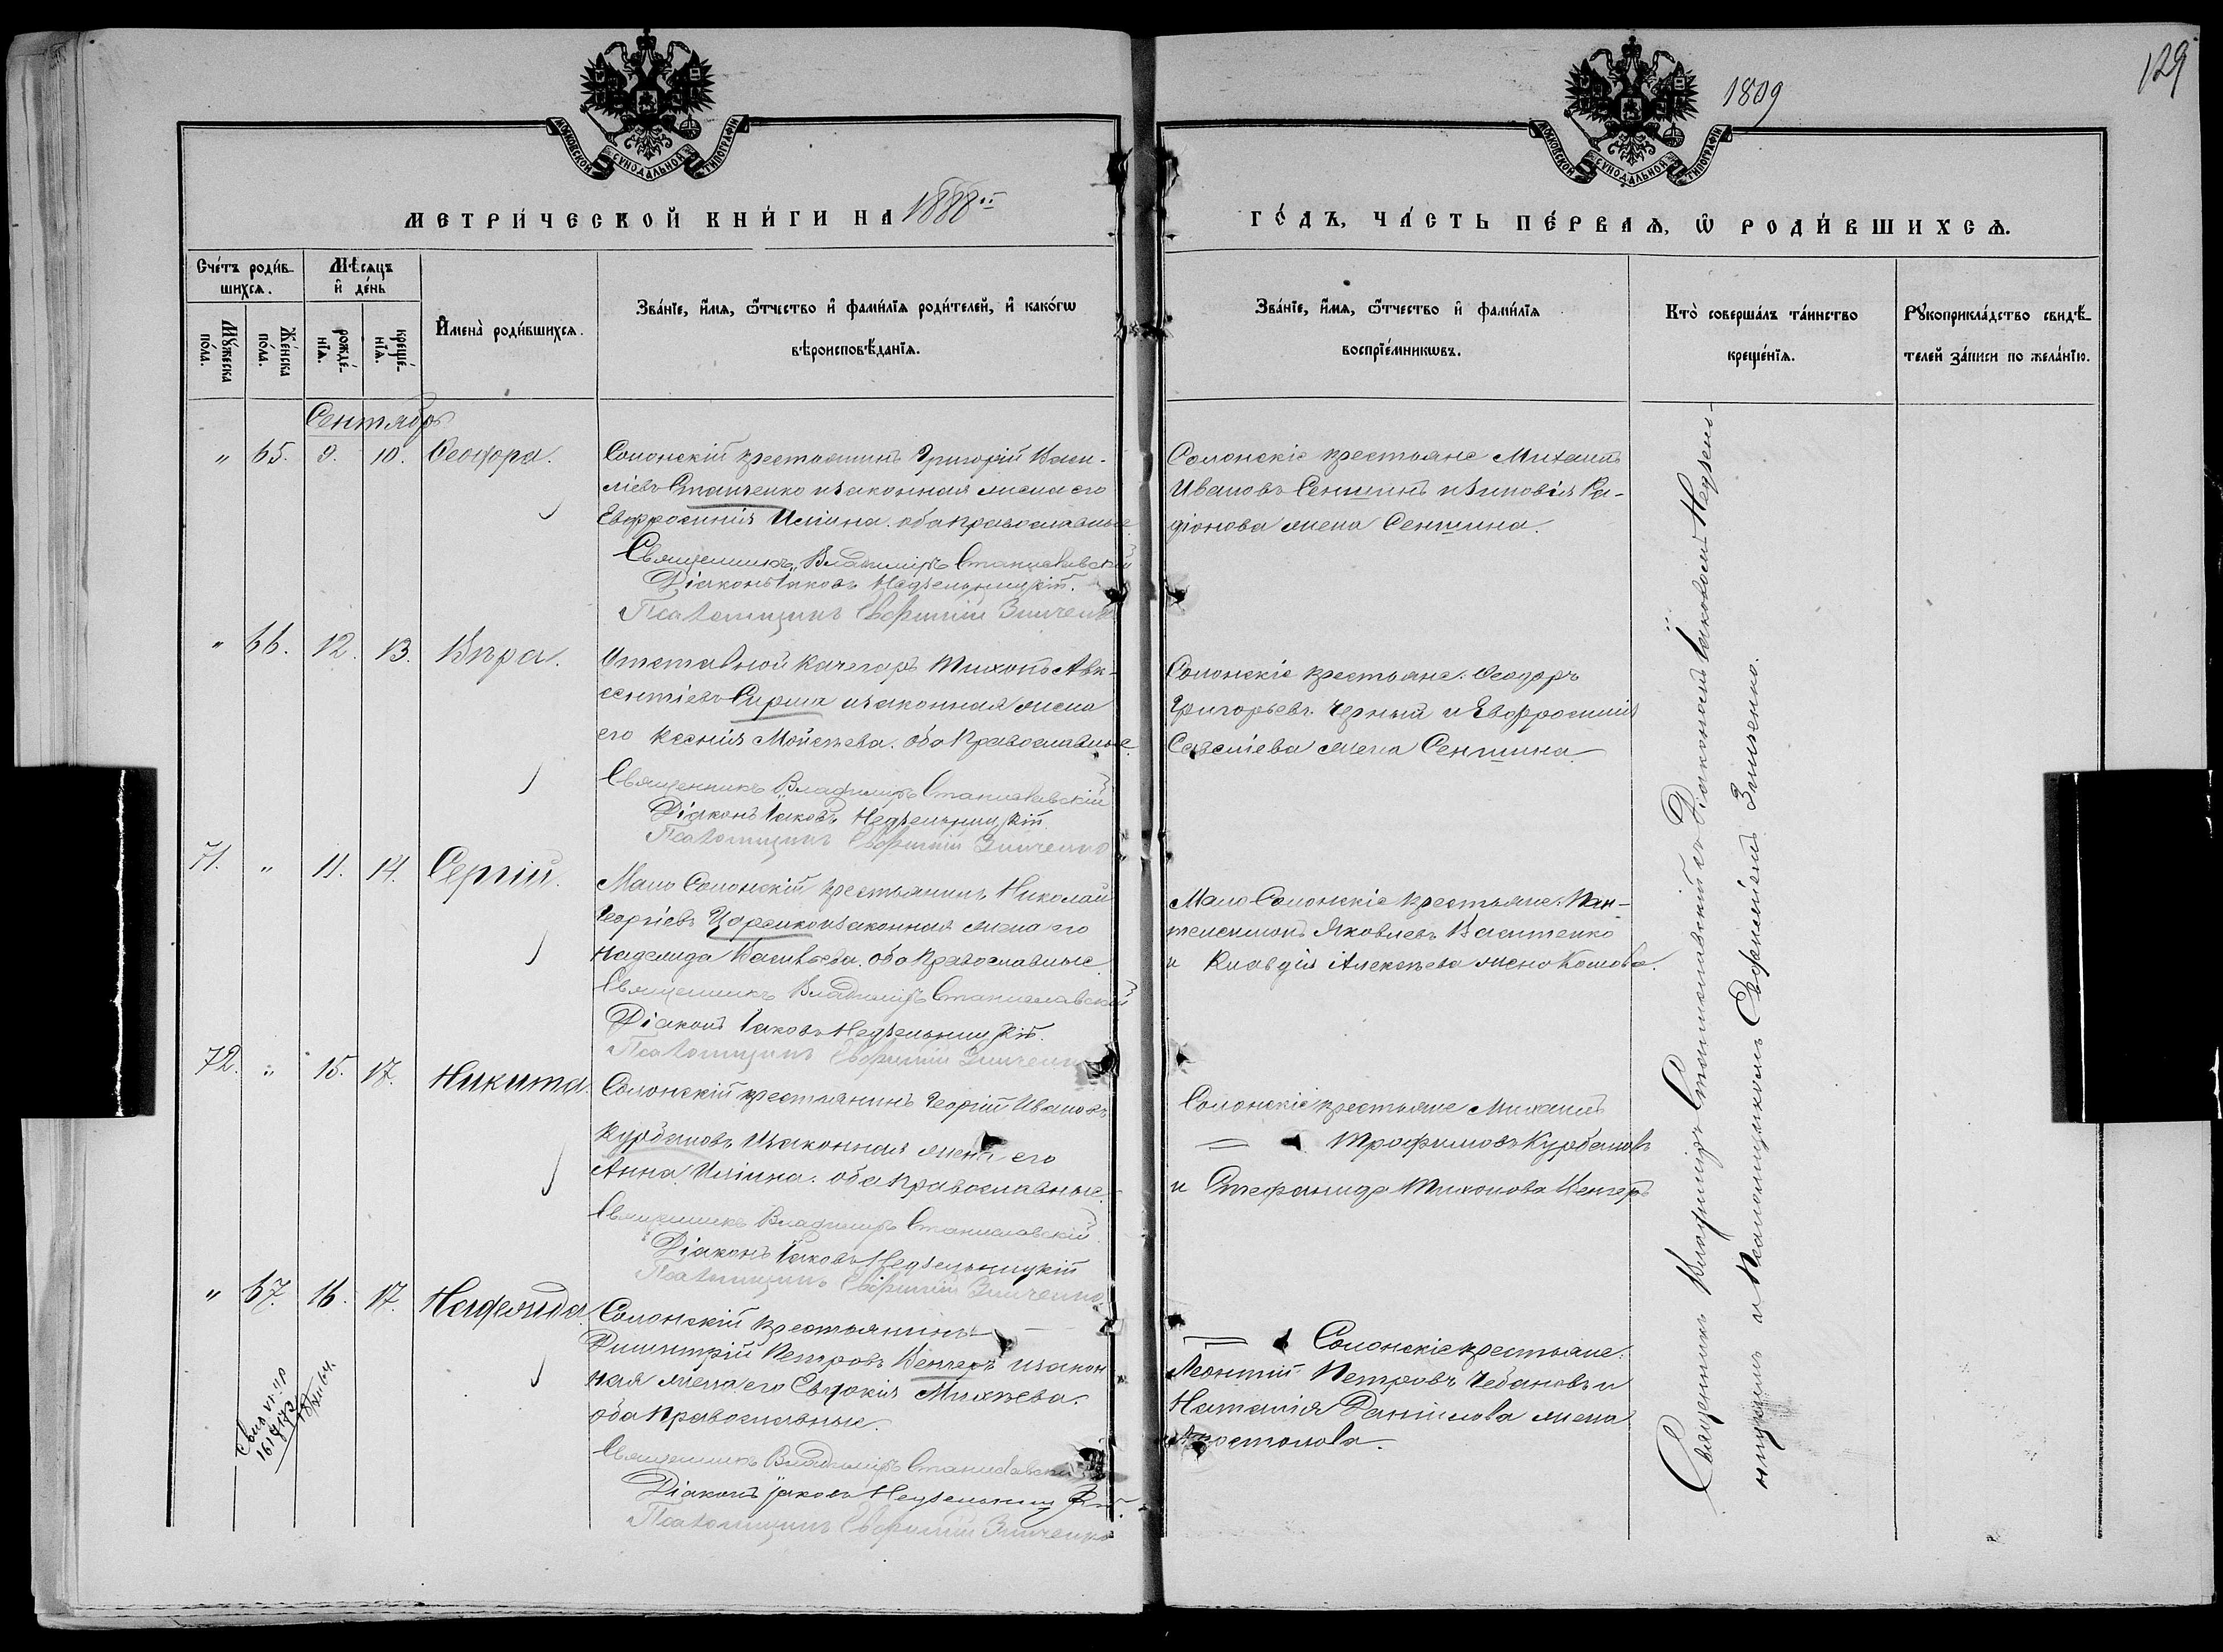 1809
129
МОСКОВСКОЙ СѴНОДАЛЬНОЙ ТИПОГРАФІИ
МОСКОВСКОЙ СѴНОДАЛЬНОЙ ТИПОГРАФІИ
МЕТРИ́ЧЕСКОЙ КНИ́ГИ НА 1888
ГО́ДЪ, ЧА́СТЬ ПЕ́РВАѦ, Ѽ РОДИ́ВШИХСѦ.
Сче́тъ роди́в-
шихсѧ.
Мꙋ́жеска по́ла.
Же́нска по́ла.
Мѣ́сѧцъ и҆ де́нь
рожде́-нїѧ.
креще́-нїѧ.
И҆мена̀ роди́вшихсѧ.
Зва́нїе, и҆́мѧ, ѻ҆́тчество и҆ фами́лїѧ роди́телей, и҆ како́гѡ
вѣроисповѣ́данїѧ.
Зва́нїе, и҆́мѧ, ѻ҆́тчество и҆ фами́лїѧ
воспрїе́мникѡвъ.
Кто̀ соверша́лъ та́инство
креще́нїѧ.
Рꙋкоприкла́дство свидѣ́-
телей за́писи по жела́нїю.
Сентябрь
" 65. 9. 10. Ѳеодора.
Солонскій крестьянинъ Григорій Васи-
ліевъ Станченко и законная жена его
Евфросинія Иліина. оба православные
Священникъ Владиміръ Станиславскій
Діаконъ Іаковъ Недзельницкій.
Псаломщикъ Евфимій Зинченко
Солонскіе крестьяне Михаилъ
Ивановъ Сеншинъ и Зиновія Ра-
діонова жена Сеншина.
" 66. 12. 13. Вѣра.
Отставной качегаръ Тихонъ Авк-
сентіевъ и законная жена
его Ксенія Мойсѣева. оба православные.
Священникъ Владиміръ Станиславскій
Діаконъ Іаковъ Недзельницкій
Псаломщикъ Евфимій Зинченко
Солонскіе крестьяне: Ѳеодоръ
Григорьевъ Черный и Евфросинія
Савеліева жена Сеншина.
71. " 11. 14. Сергій.
Мало Солонскій крестьянинъ Николай
Георгіевъ Царенко и законная жена его
Надежда Васильева. оба православные
Священникъ Владиміръ Станиславскій
Діаконъ Іаковъ Недзельницкій.
Псаломщикъ Евфимій Зинченко
Мало-Солонскіе крестьяне: Пан-
телеимонъ Яковлевъ Василенко
и Клавдія Алексѣева жена Котова.
72. " 15. 17. Никита.
Солонскій крестьянинъ Георгій Ивановъ
Курбановъ и законная жена его
Анна Иліина. оба православные.
Священникъ Владиміръ Станиславскій
Діаконъ Іаковъ Недзельницкій
Псаломщикъ Евфимій Зинченко
Солонскіе крестьяне Михаилъ
Трофимовъ Курбановъ
и Стефанида Тихонова Венгеръ
" 67. 16. 17. Надежда.
Солонскій крестьянинъ
Димитрій Петровъ Венгеръ и закон
ная жена его Евдокія Михѣева.
оба православные.
Священникъ Владиміръ Станиславскій
Діаконъ Іаковъ Недзельницкій.
Псаломщикъ Евфимій Зинченко
Солонскіе крестьяне:
Леонтій Петровъ Чебановъ и
Наталія Даніилова жена
Апостолова.
Священникъ Владиміръ Станиславскій съ Діакономъ Іаковомъ Недзель-
ницкимъ и Псаломщикомъ Евфиміемъ Зинченко.